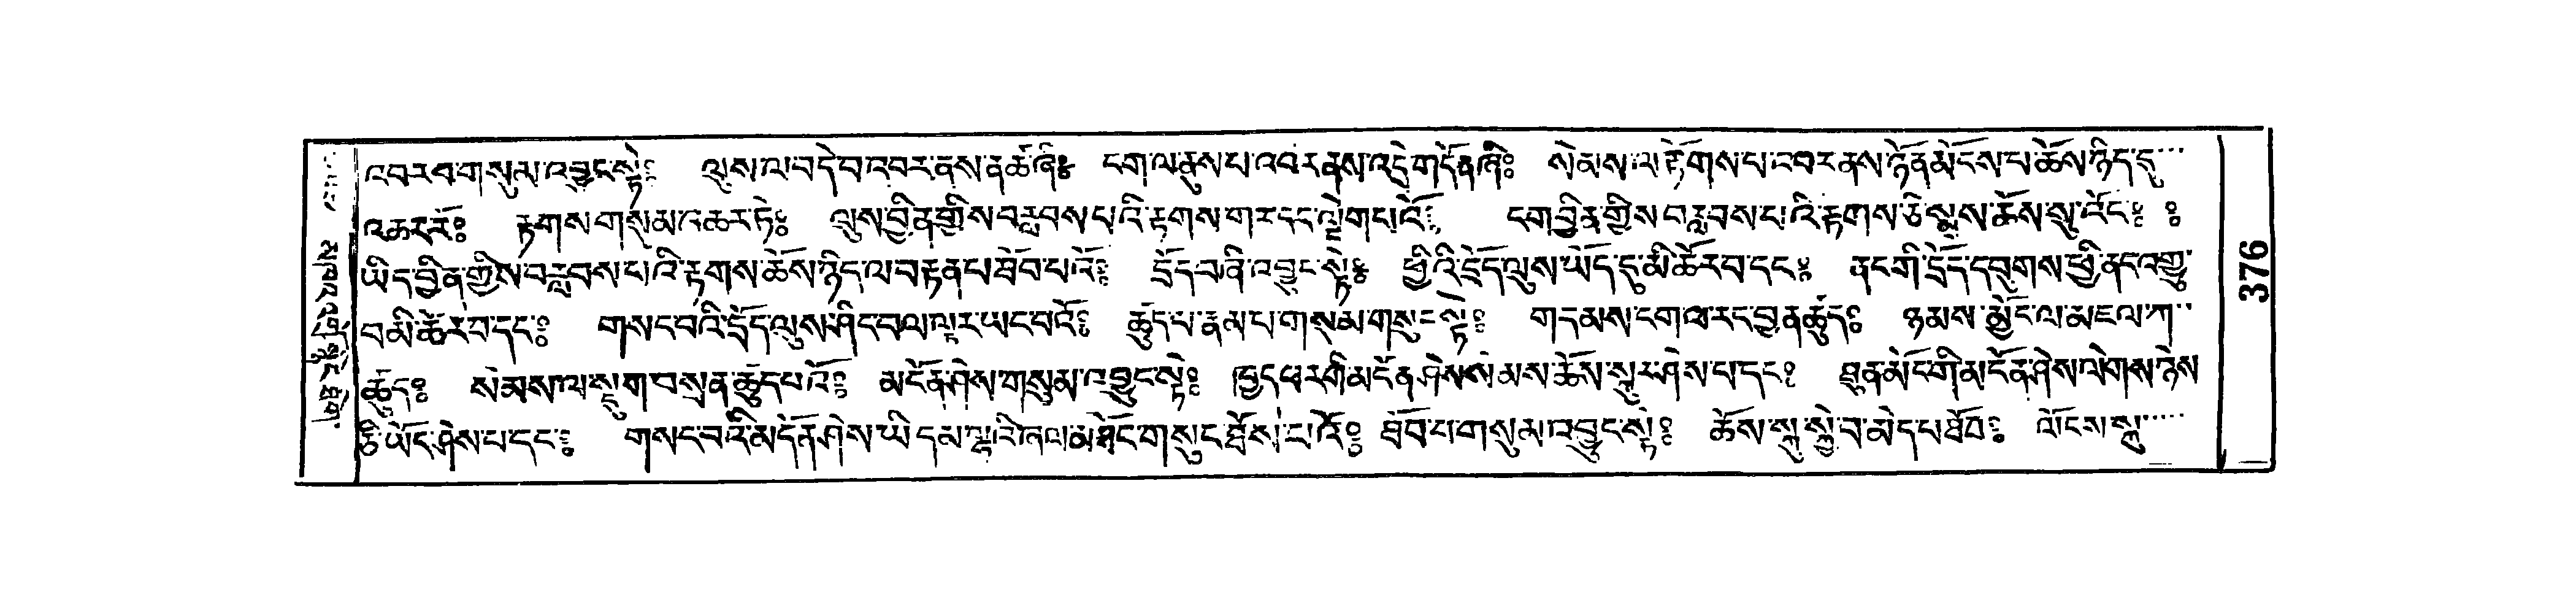 འབར་བ་གསུམ་འབྱུང་སྟེ༔ ལུས་ལ་བདེ་བ་འབར་ནས་ན་ཚ་ཞི༔ ངག་ལ་ནུས་པ་འབར་ནས་འདྲེ་གདོན་ཞི༔ སེམས་ལ་རྟོགས་པ་འབར་ནས་ཉོན་མོངས་པ་ཆོས་ཉིད་དུ་
འཆར་རོ༔ རྟགས་གསུམ་འཆར་ཏེ༔ ལུས་བྱིན་གྱིས་བརླབས་པའི་རྟགས་གར་དང་ལྡེག་པའོ༔ ངག་བྱིན་གྱིས་བརླབས་པའི་རྟགས་ཅི་སྨྲས་ཆོས་སུ་འོང་༔ ༔
ཡིད་བྱིན་གྱིས་བརླབས་པའི་རྟགས་ཆོས་ཉིད་ལ་བརྟན་པ་ཐོབ་པའོ༔ དྲོད་བཞི་འབྱུང་སྟེ༔ ཕྱིའི་དྲོད་ལུས་ཡོད་དུ་མི་ཚོར་བ་དང་༔ ནང་གི་དྲོད་དབུགས་ཕྱི་ནང་འགྱུ་
བ་མི་ཚོར་བ་དང་༔ གསང་བའི་དྲོད་ལུས་ཤིང་བལ་ལྟར་ཡང་བའོ༔ ཚུད་པ་རྣམ་པ་གསུམ་གསུང་སྟེ༔ གདམས་ངག་ལ་རང་བྱན་ཚུད༔ ཉམས་མྱོང་ལ་མངལ་ཀ་
ཚུད༔ སེམས་ལ་སྡུག་བསྲན་ཚུད་པའོ༔ མངོན་ཤེས་གསུམ་འབྱུང་སྟེ༔ ཁྱད་པར་གི་མངོན་ཤེས་སེམས་ཆོས་སྐུར་ཤེས་པ་དང་༔ ཐུན་མོང་གི་མངོན་ཤེས་ལེགས་ཉེས་
ཅི་ཡོང་ཤེས་པ་དང་༔ གསང་བའི་མངོན་ཤེས་ཡི་དམ་ལྷའི་ཞལ་མཐོང་གསུང་ཐོས་པའོ༔ ཐོབ་པ་གསུམ་འབྱུང་སྟེ༔ ཆོས་སྐུ་སྐྱེ་བ་མེད་པ་ཐོབ༔ ལོངས་སྐུ་
376